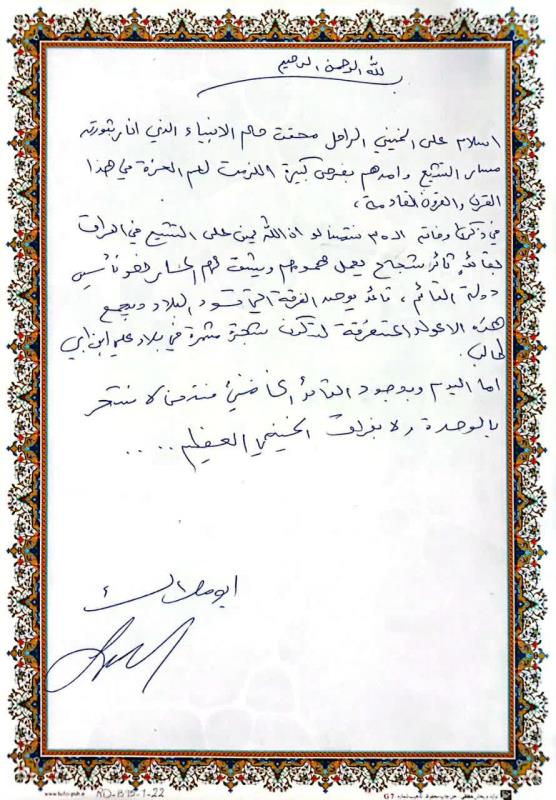 لله الرحمن الرحيم
اسلام على الخميني الراحل محقق حلم الانبياء الذي انار بثورته
مسار التشيع وامدهم بفرص كبيرة اللزمت لهم العزة في هذا
القرن والقرون القادمة،
في ذكرى وفاته الـ٣٥ نتمنا لو ان الله يمن على التشيع في العراق
بقائد ثائر شجاع يحمل همومهم ويثبت لهم المسار نحو تأسيس
دولة القائم، قائد يوحد الفرقة التي تسود البلاد ويجمع
هذه الاعواد المتفرقة لتكون شجرة مثمرة في بلاد علي ابن ابي
طالب.
اما اليوم وبوجود القائد الخامنئي فنحن لا نشعر
بالوحدة ولا بفراق الخميني العظيم....
ابو
www.hafez-pub.ir
ND-B 75-1-22
G 7